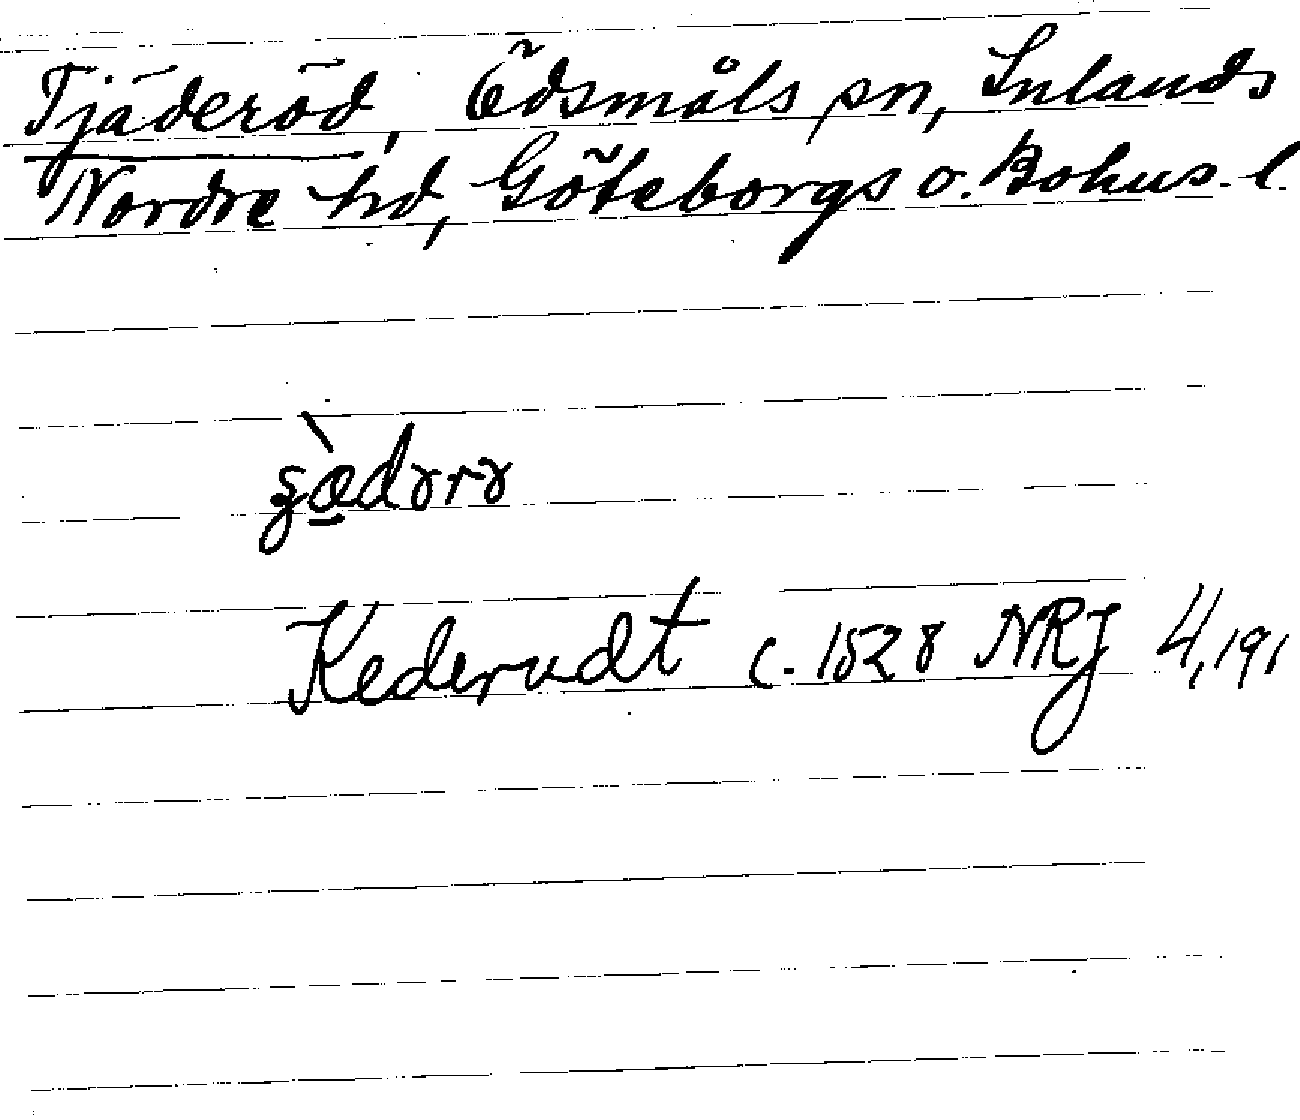 Tjäderöd, Ödsmåls sn, Inlands
Nordre hd, Göteborgs o. Bohus. l.
Kederudt c. 1528 NRJ 4,191